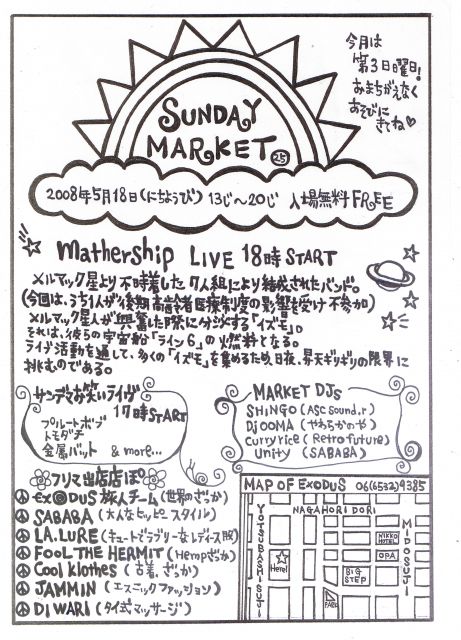 今月は
第3日曜日!
おまちがえなく
あそびに
きてね♡
SUNDAY
MARKET 25
2008年5月18日(にちようび) 13じ~20じ 入場無料 FREE
mathership LIVE 18時 START
メルマック星より不時着した7人組により結成されたバンド。
(今回は、うち1人が後期高齢者医療制度の影響を受け不参加)
メルマック星人が興奮した際に分泌する「イズモ」。
それは、彼らの宇宙船「ライン6」の燃料となる。
ライブ活動を通して、多くの「イズモ」を集めるため、日夜、昇天ギリギリの限界に
挑むのである。
サンデマお笑いライヴ
17時START
プルートボブ
トモダチ
金属バット & more...
MARKET DJs
SHINGO (ASC Sound.r)
Dj OOMA (やわらかのや)
Curry rice (Retro future)
Unity (SABABA)
フリマ出店店ぽ
EX@DUS 旅人チーム (世界のざっか)
SABABA (大人なヒッピースタイル)
LA.LURE (キュートでラブリーなレディース服)
FOOL THE HERMIT (Hempざっか)
Cool Klothes (古着、ざっか)
JAMMIN (エスニックファッション)
DIWARI (タイ式マッサージ)
MAP OF EXODUS 06(6532)9385
NAGAHORI DORI
YOTSUBASHI SUJI
MIDOSUJI
NIKKO HOTEL
OPA
Here!
BIG STEP
PARK